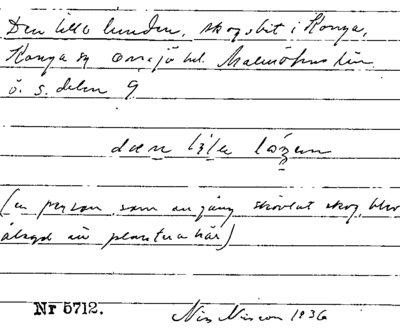 Den lilla lunden, skogsbit i Konga,
Konga sn Onsjö hd. Malmöhus län
ö. s. delen 9
(en person som en gång skövlat skog, blev
ålagd att plantera här)
Nr 5712. Nils Nilsson 1936